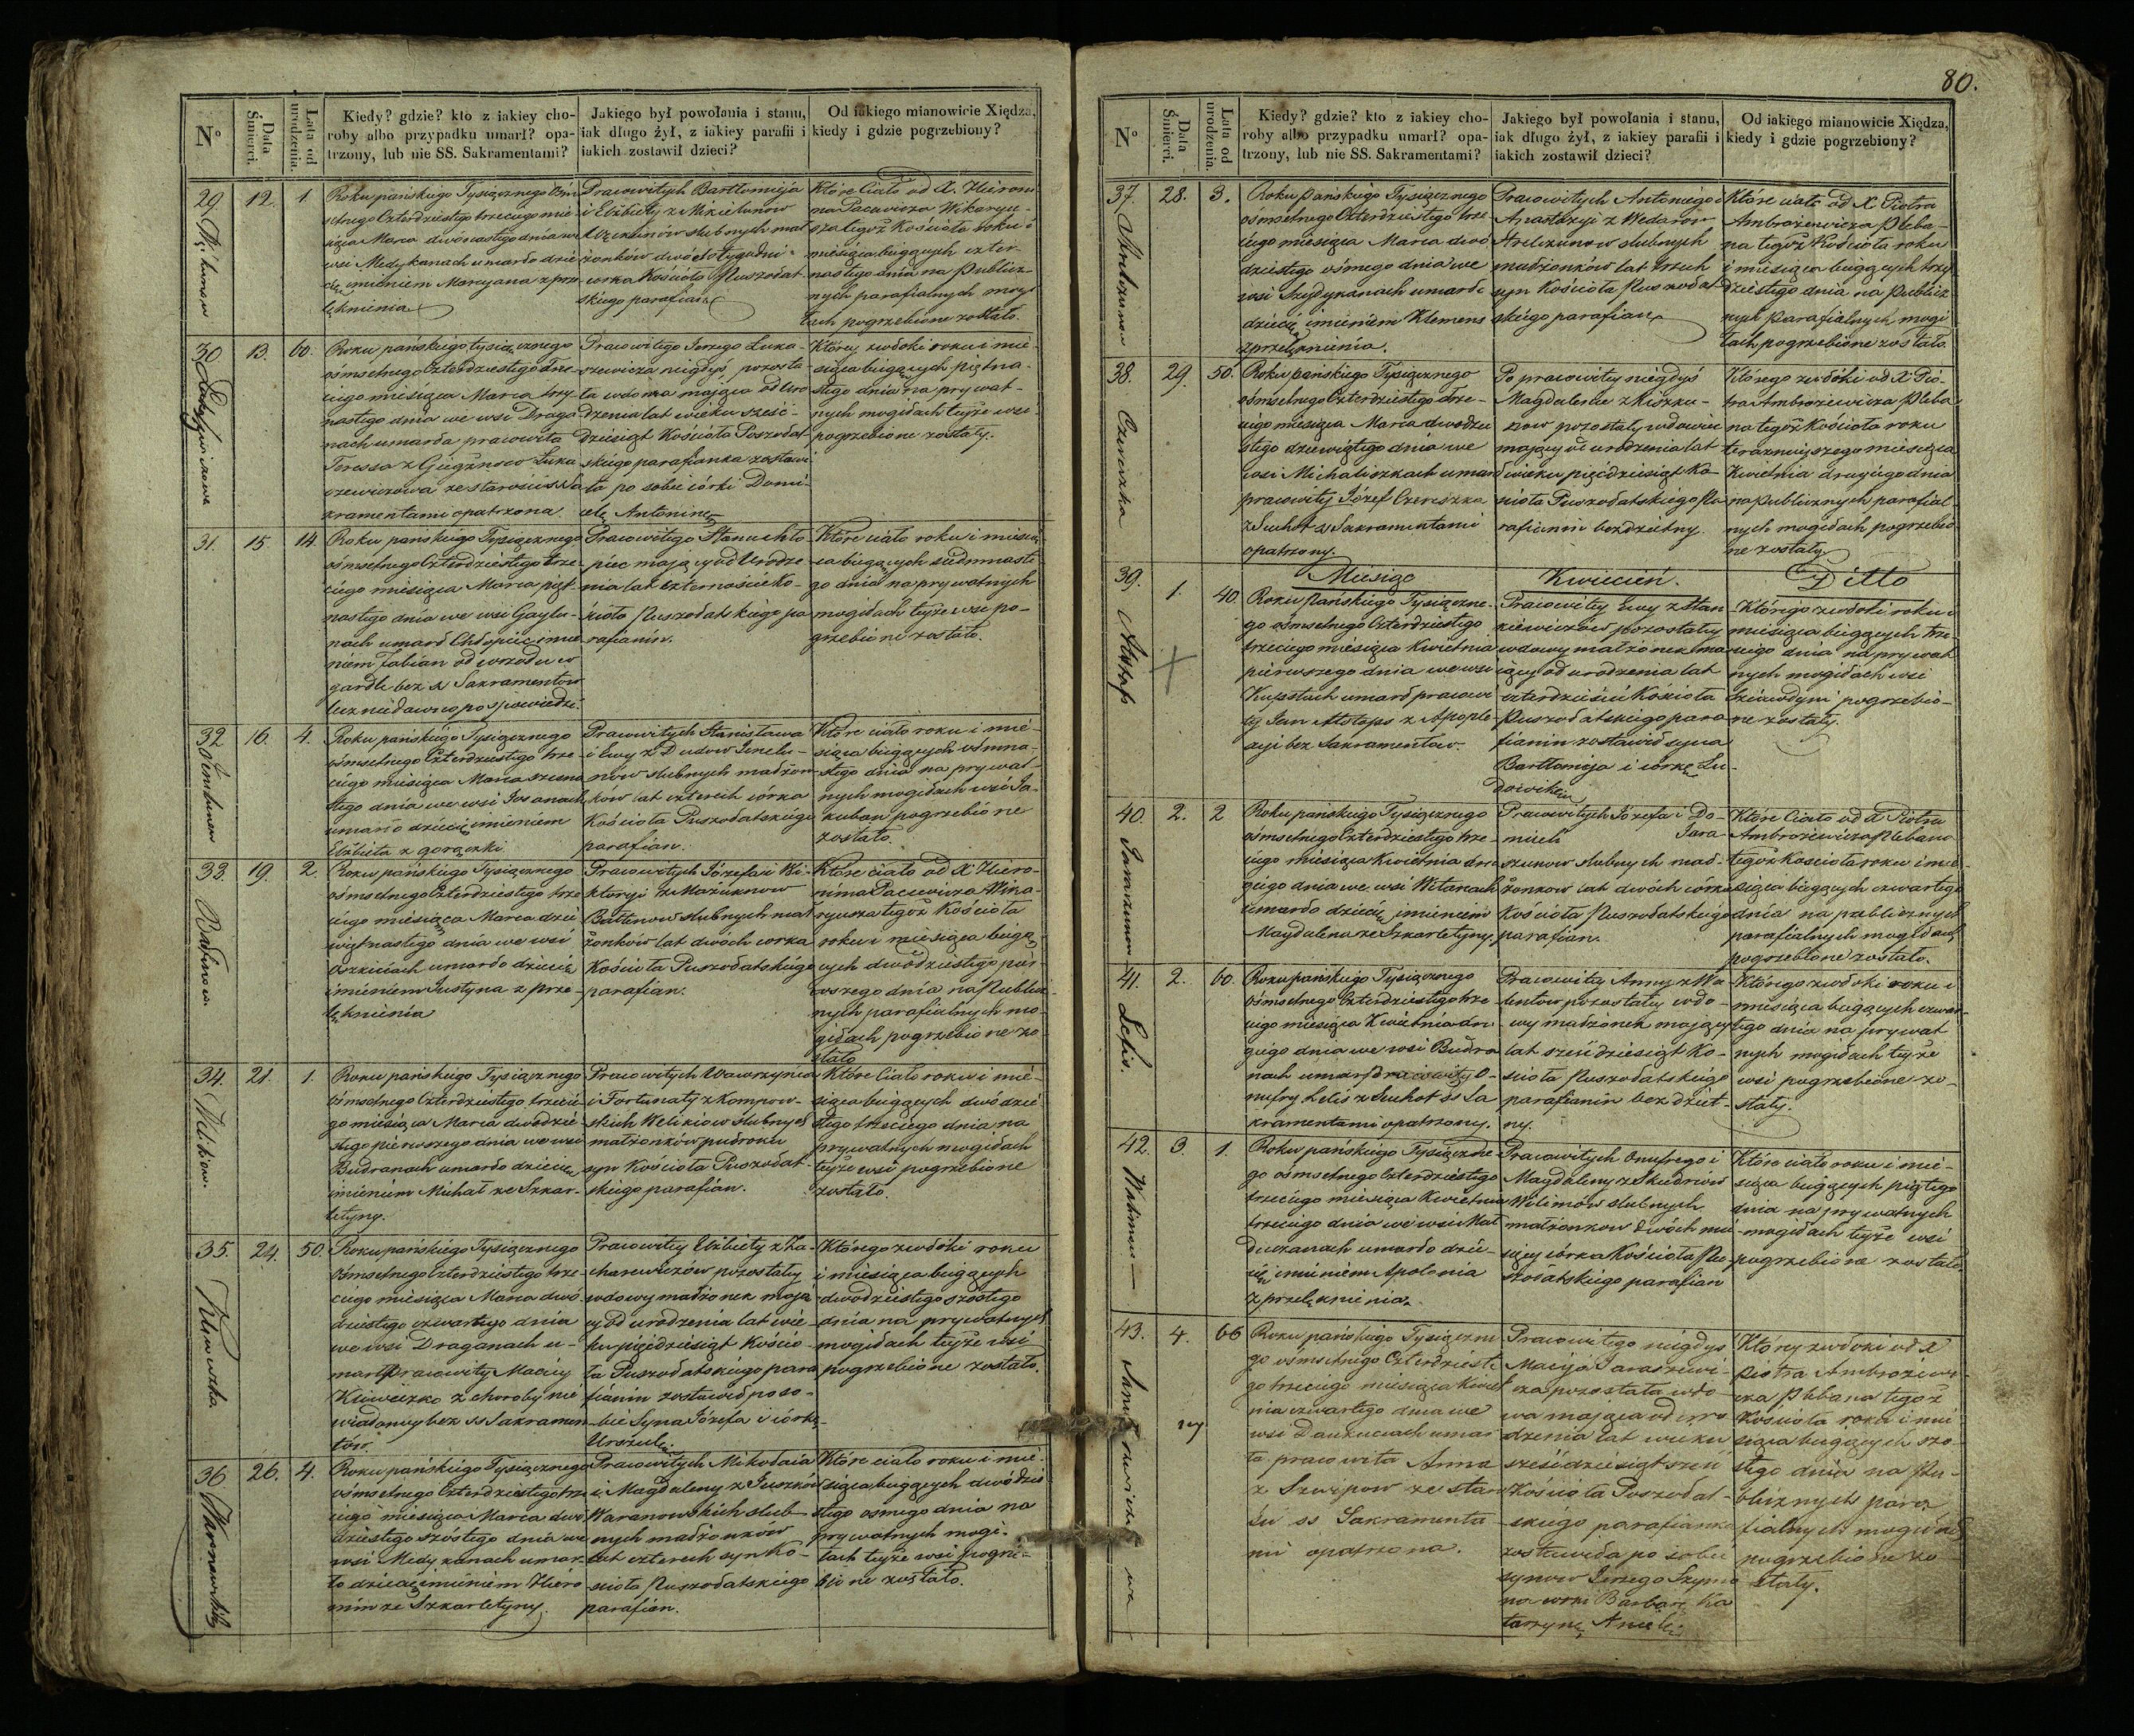 80.
Nº
Data Śmierci.
Lata od urodzenia.
Kiedy? gdzie? kto z iakiey cho-
roby albo przypadku umarł? opa-
trzony, lub nie SS. Sakramentami?
Jakiego był powołania i stanu,
iak długo żył, z iakiey parafii i
iakich zostawił dzieci?
Od iakiego mianowicie Xiędza,
kiedy i gdzie pogrzebiony?
29.
12.
1.
Roku pańskiego Tysiącznego Ośm
setnego Czterdziestego trzeciego mie
siąca Marca dwónastego dnia we
wsi Medykanach umarło dzie
cię imieniem Maryana z prze
lęknienia
Pracowitych Bartłomieja
i Elżbiety z
ślubnych mał
żonków dwóch tygodni
córka Kościoła Puszołat-
skiego parafian
Które Ciało od X. Hieroni
ma Pacewicza Wikaryu-
sza tegóż Kościoła roku i
miesiąca bieżących czter-
nastego dnia na Publicz-
nych parafialnych mogi
łach pogrzebione zostało.
30
13.
60.
Roku pańskiego tysiącznego
ośmsetnego Czterdziestego Trze-
ciego miesiąca Marca trzy-
nastego dnia we wsi Draga-
nach umarła pracowita
Teressa z Giegznow Łuka
szewiczowa ze starości ss Sa
kramentami opatrzona.
Pracowitego Jerzego Łuka-
szewicza niegdyś pozosta-
ła wdowa mająca od Uro
dzenia lat wieku sześć-
dziesiąt Kościoła Poszołat-
skiego parafianka zostawi
ła po sobie córki Domi-
celę Antoninę
Której zwłoki roku i mie-
siąca bieżących piętna-
stego dnia na prywat-
nych mogiłach tejże wsi
pogrzebione zostały.
31.
15.
14.
Roku pańskiego Tysiącznego
ośmsetnego Czterdziestego trze-
ciego miesiąca Marca pięt-
nastego dnia we wsi Gaylu-
nach umarł Chłopiec imie
niem Fabian od wrzodu w
gardle bez ss Sakramentow
lecz niedawno po spowiedzi.
Pracowitego Stanu chło-
piec mający od Urodze
nia lat czternaście Ko-
ścioła Puszołatskiego pa
rafianin.
Które ciało roku i miesią
ca bieżących siedmnaste
go dnia na prywatnych
mogiłach tejże wsi po-
grzebione zostało.
32.
16.
4.
Roku pańskiego Tysiącznego
ośmsetnego Czterdziestego trze-
ciego miesiąca Marca szesna
stego dnia we wsi Josanach
umarło dziecię imieniem
Elżbieta z gorączki
Pracowitych Stanisława
i Ewy z Dudow
ślubnych małżon-
ków lat czterech córka
Kościoła Puszołatskiego
parafian.
Które ciało roku i mie-
siąca bieżących ośmna-
stego dnia na prywat-
nych mogiłach wsi Ja-
kuban pogrzebione
zostało.
33.
19.
2.
Roku pańskiego Tysiącznego
ośmsetnego Czterdziestego trze
ciego miesiąca Marca dzie
więtnastego dnia we wsi
umarło dziecię
imieniem Justyna z prze-
lęknienia
Pracowitych Józefa i Wi-
ktoryi z
ślubnych mał
żonków lat dwóch córka
Kościoła Puszołatskiego
parafian.
Które ciało od X. Hiero-
nima Pacewicza Wika-
ryusza tegóż Kościoła
roku i miesiąca bieżą
cych dwódziestego pier-
wszego dnia na Publicz
nych parafialnych mo-
giłach pogrzebione zo-
stało
34.
21.
1.
Roku pańskiego Tysiącznego
ośmsetnego Czterdziestego trzecie
go miesiąca Marca dwódzie
stego pierwszego dnia we wsi
Budranach umarło dziecię
imieniem Michał ze Szkar-
letyny.
Pracowitych Wawrzyńca
i Fortunaty z
ślubnych
małżonków półroku
syn Kościoła Puszołat-
skiego parafian.
Które Ciało roku i mie-
siąca bieżących dwódzie
stego trzeciego dnia na
prywatnych mogiłach
tejże wsi pogrzebione
zostało.
35.
24.
50.
Roku pańskiego Tysiącznego
Ośmsetnego Czterdziestego trze-
ciego miesiąca Marca dwó-
dziestego czwartego dnia
we wsi Draganach u-
marł Pracowity Maciej
z choroby nie
wiadomej bez ss Sakramen
tów.
Pracowitej Elżbiety z Za-
charewiczów pozostały
wdowy małżonek mają
cy od urodzenia lat wie-
ku pięćdziesiąt Kościo-
ła Puszołatskiego para
fianin zostawił po so-
bie Syna Józefa i córkę
Urszulę.
Którego zwłoki roku
i miesiąca bieżących
dwódziestego szóstego
dnia na prywatnych
mogiłach tejże wsi
pogrzebione zostało.
36.
26.
4.
Roku pańskiego Tysiącznego
ośmsetnego Czterdziestego trze
ciego miesiąca Marca dwó
dziestego szóstego dnia we
wsi Medykanach umar
ło dziecię imieniem Hiero
nim ze Szkarletyny.
Pracowitych Mikołaia
i Magdaleny z Juszków
Waranowskich ślub-
nych małżonków
lat czterech syn Ko-
ścioła Puszołatskiego
parafian.
Które ciało roku i mie-
siąca bieżących dwódzie
stego osmego dnia na
prywatnych mogi-
łach tejże wsi pogrze-
bione zostało.
Nº
Data Śmierci.
Lata od urodzenia.
Kiedy? gdzie? kto z iakiey cho-
roby albo przypadku umarł? opa-
trzony, lub nie SS. Sakramentami?
Jakiego był powołania i stanu,
iak długo żył, z iakiey parafii i
iakich zostawił dzieci?
Od iakiego mianowicie Xiędza,
kiedy i gdzie pogrzebiony?
37.
28.
3.
Roku pańskiego Tysiącznego
ośmsetnego Czterdziestego trze
ciego miesiąca Marca dwó
dziestego ośmego dnia we
wsi umarło
dziecię imieniem Klemens
z przelęknienia.
Pracowitych Antoniego i
Anastazyi z
ślubnych
małżonków lat trzech
syn Kościoła Puszołat
skiego parafian
Które ciało od X. Piotra
Ambrożewicza Pleba-
na tegóż Kościoła roku
i miesiąca bieżących trzy
dziestego dnia na Publicz
nych Parafialnych mogi
łach pogrzebione zostało.
38.
29.
50.
Roku pańskiego Tysiącznego
ośmsetnego Czterdziestego trze-
ciego miesiąca Marca dwodzie
stego dziewiątego dnia we
wsi Michaliszkach umarł
pracowity Józef Czereszka
z Suchot ss Sakramentami
opatrzony.
Po pracowitej niegdyś
Magdalenie z
pozostały wdowiec
mający od urodzenia lat
wieku pięćdziesiąt Ko-
ścioła Puszołatskiego Pa
rafianin bezdzietny.
Którego zwłoki od X Pio-
tra Ambrożewicza Pleba
na tegóż Kościoła roku
teraznieyszego miesiąca
Kwietnia drugiego dnia
na Publicznych parafial-
nych mogiłach pogrzebio
ne zostały.
Miesiąc Kwiecień. Ditto
39.
1.
40.
Roku Pańskiego Tysiączne-
go ośmsetnego Czterdziestego
trzeciego miesiąca Kwietnia
pierwszego dnia we wsi
umarł pracowi
ty Jan z Apople-
xyi bez Sakramentow.
Pracowitej Ewy z Stan
kiewiczów pozostały
wdowy małżonek ma
iący od urodzenia lat
czterdzieście Kościoła
Puszołatskiego para
fianin zostawił syna
Bartłomieja i córkę Lu-
dowikę
Którego zwłoki roku i
miesiąca bieżących trze
ciego dnia na prywat
nych mogiłach wsi
pogrzebio-
ne zostały.
40.
2.
2
Roku pańskiego Tysiącznego
ośmsetnego Czterdziestego trze-
ciego miesiąca Kwietnia dru
giego dnia we wsi Witanach
umarło dziecię imieniem
Magdalena ze Szkarletyny
Pracowitych Józefa i Do-
ślubnych mał-
żonkow lat dwóch córka
Kościoła Puszołatskiego
parafian.
Które Ciało od X Piotra
Ambrożewicza Plebana
tegóż Kościoła roku i mie-
siąca bieżących czwartego
dnia na publicznych
parafialnych mogiłach
pogrzebione zostało.
41.
Lelis.
2.
60.
Roku pańskiego Tysiącznego
ośmsetnego Czterdziestego trze
ciego miesiąca Kwietnia dru
giego dnia we wsi Budra
nach umarł Pracowity O-
nufry Lelis z Suchot ss Sa
kramentami opatrzony.
Pracowitej Anny z
pozostały wdo-
wy małżonek mający
lat sześćdziesiąt Ko-
ścioła Puszołatskiego
parafianin bezdziet-
ny.
Którego zwłoki roku i
miesiąca bieżących czwar-
tego dnia na prywat
nych mogiłach tejże
wsi pogrzebione zo-
stały.
42.
3.
1.
Roku pańskiego Tysiączne-
go ośmsetnego Czterdziestego
trzeciego miesiąca Kwietnia
trzeciego dnia we wsi
umarło dzie-
cię imieniem Apolonia
z przelęknienia.
Pracowitych Onufrego i
Magdaleny z
ślubnych
małżonkow dwóch mie
sięcy córka Kościoła Pu
szołatskiego parafian
Które ciało roku i mie-
siąca bieżących piątego
dnia na prywatnych
mogiłach tejże wsi
pogrzebione zostało.
43.
4.
66
Roku pańskiego Tysiączne
go ośmsetnego Czterdzieste
go trzeciego miesiąca Kwiet
nia czwartego dnia we
wsi umar
ła pracowita Anna
z ze staro
ści ss Sakramenta
mi opatrzona.
Pracowitego niegdyś
Macieja
pozostała wdo-
wa mająca od uro
dzenia lat wieku
sześćdziesiąt sześć
Kościoła Puszołat-
skiego parafianka
zostawiła po sobie
synow Jerzego Szymo
na córki Barbarę Ka
tarzynę Anielę.
Której zwłoki od X
Piotra Ambrożewi-
cza Plebana tegóż
Kościoła roku i mie
siąca bieżących szó-
stego dnia na Pu-
blicznych para
fialnych mogiłach
pogrzebione zo-
stały.